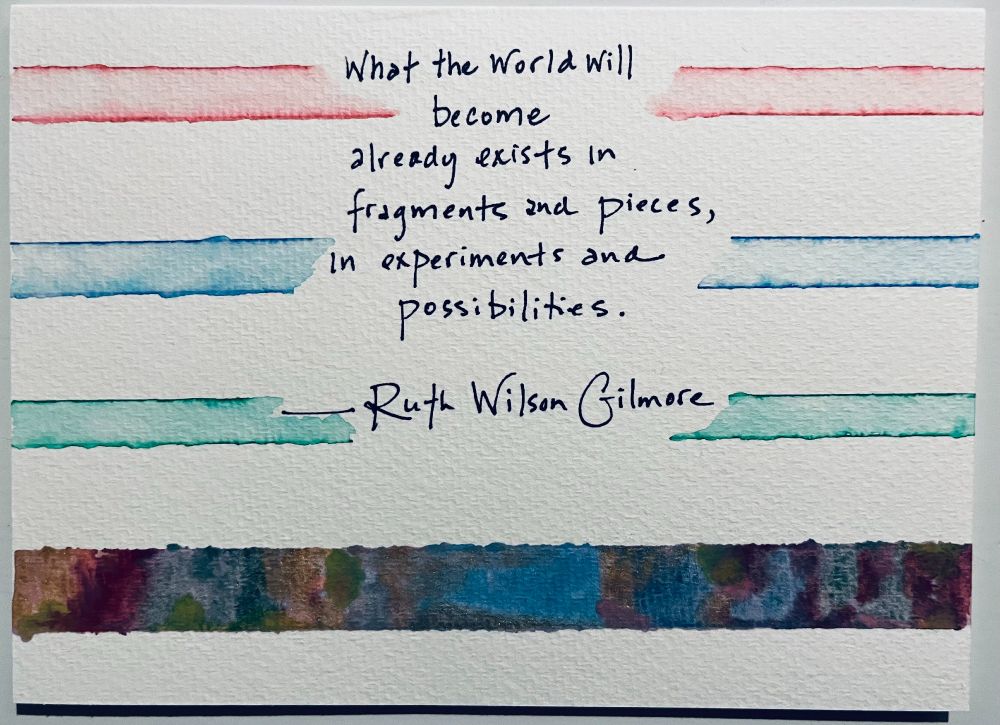 What the World Will
become
already exists in
fragments and pieces,
in experiments and
possibilities.
— Ruth Wilson Gilmore